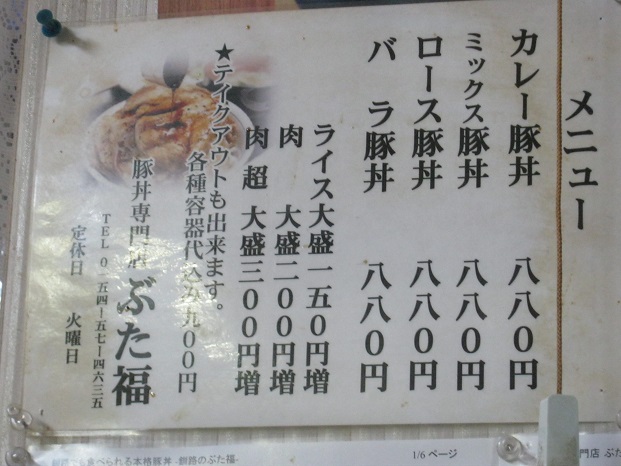 メニュー
カレー豚丼 八八0円
ミックス豚丼 八八0円
ロース豚丼 八八0円
バラ豚丼 八八0円
ライス大盛一五0円増
肉 大盛二00円増
肉 超 大盛三00円増
★テイクアウトも出来ます。
各種容器代込み九00円
豚丼専門店 ぶた福
TEL 0一五四ー五七ー四六三五
定休日 火曜日
べられる本格豚丼 -釧路のぶた福-
1/6 ページ
門店 ぶた